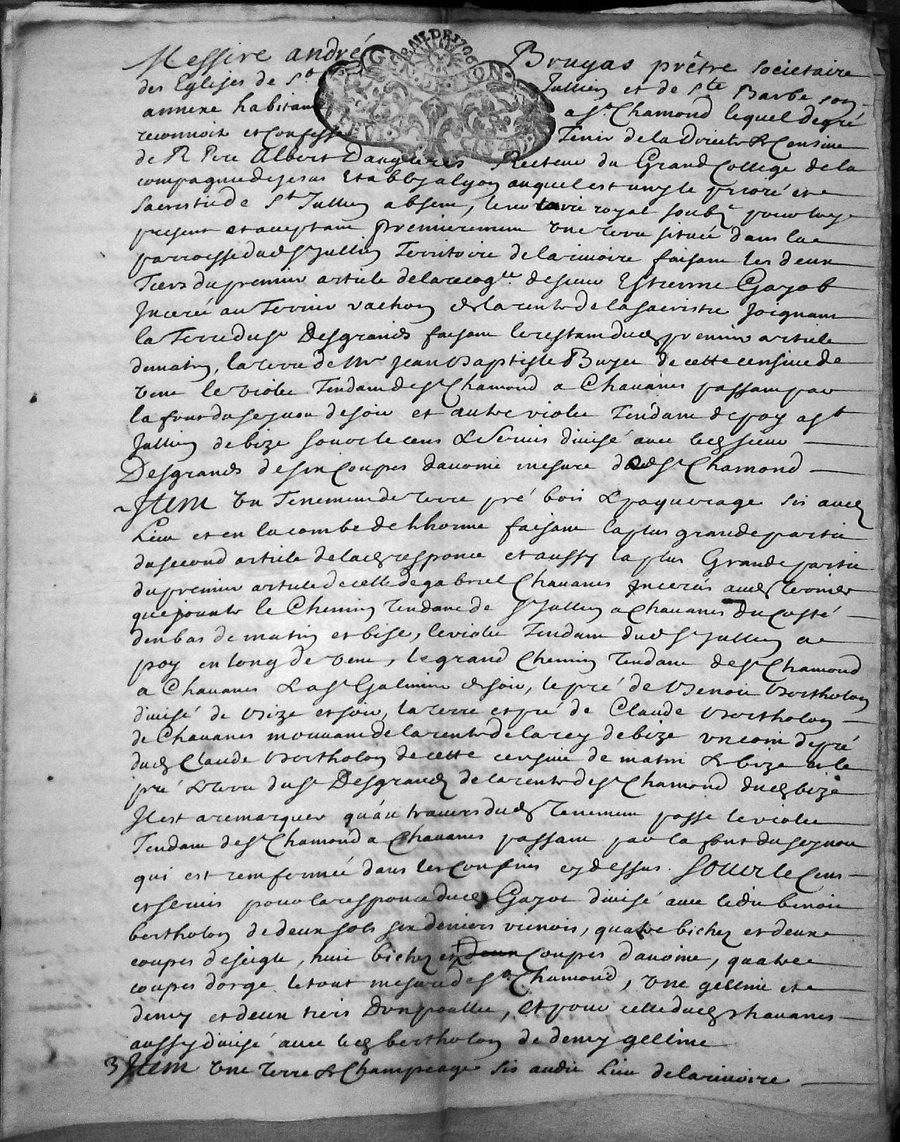 Messire andré Bruyas prêtre societaire
des Eglises de St Jullien et de Ste Barbe son
annexe habitant a St Chamond lequel de gré
reconnoit et confesse Tenir de la Directe & Censive
de R Pere Albert Daugieres Recteur du Grand College de la
compagnie de jesus Etably a lyon auquel est uny le prioré et
sacristie de St Jullien absent, le notaire royal soubne pour luy
present et acceptant premierement une terre située dans la
parroisse dud St Jullien Territoire de la rivoire faisant les deux
Tiers du premier article de la recogce de sieur Estienne Gayot
Inceré au Terrier vachon & la rente de la sacristie Joignant
la Terre du Sr Desgrands faisant le restant dud premier article
de matin, la terre de Mre Jean Baptiste Buyer de cette censive de
vent le violet Tendant de St Chamond a Chavanes passant par
la font du sejnou de soir et autre violet Tendant de poy a St
Jullien de bize sous le cens & servis divisé avec led sieur
Desgrands de six Coupes d'avoine mesure dud St Chamond
Item un Tenement de terre pré bois & paquerage sis aud
Lieu et en la combe de lhorme faisant la plus grande partie
du second article de lad responce et aussy la plus Grande partie
du premier article de celle de gabriel Chavanes Incerés aud Terrier
que jouxte le Chemin Tendant de St Jullien a Chavanes du costé
den bas de matin et bise, le violet Tendant dud St Jullien a
poy en long de vent, le grand Chemin Tendant de St Chamond
a Chavanes & a St Galmier de soir, le pré de Benoit Bertholon
divisé de bize et soir, la terre et pré de Claude Bertholon
de Chavanes mouvant de la rente de la rey de bize un coin de pré
dud Claude Bertholon de cette censive de matin & bize et le
pré & terre du Sr Desgrands de la rente de St Chamond dud bize
Il est a remarquer qu'au travers dud Tenement passe le violet
Tendant de St Chamond a Chavanes passant par la font du sejnou
qui est renfermée dans les confins cy dessus. Sous le Cens
et servis pour la responce dud Gayot divisé avec ledit benoit
bertholon de deux sols six deniers vienois, quatre bichez et deux
coupes de seigle, huit bichez et Coupes d'avoine, quatre
coupes d'orge le tout mesure de St Chamond, une gelline et
demy et deux tiers d'un poullet, et pour celle dud chavanes
aussy divisé avec led bertholon de demy gelline
3 Item une terre & Champeage sis audit Lieu de la rivoire